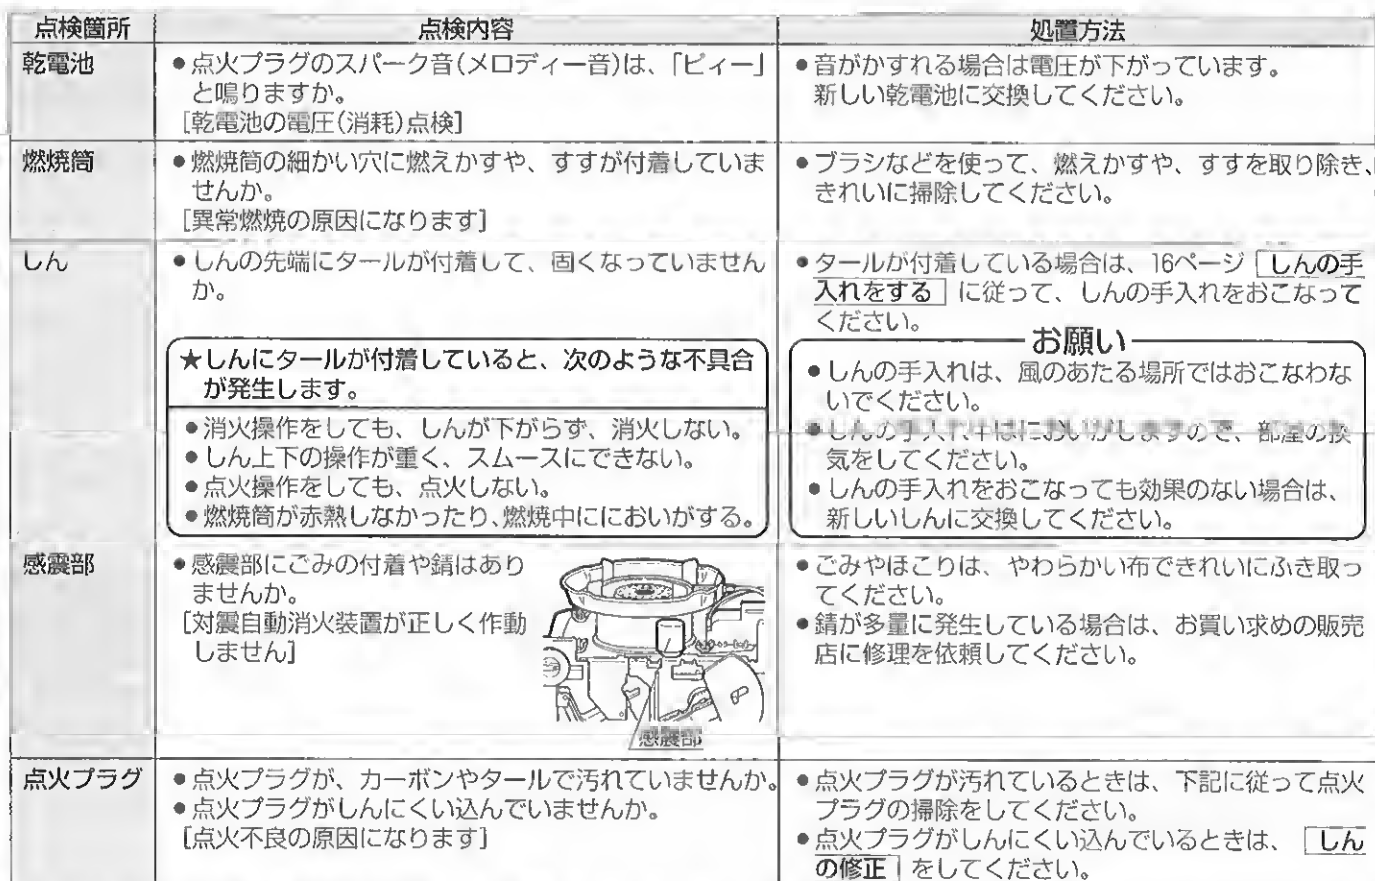 点検箇所 点検内容 処置方法
乾電池
●点火プラグのスパーク音(メロディー音)は、「ピィー」
と鳴りますか。
[乾電池の電圧(消耗)点検]
●音がかすれる場合は電圧が下がっています。
新しい乾電池に交換してください。
燃焼筒
●燃焼筒の細かい穴に燃えかすや、すすが付着していま
せんか。
[異常燃焼の原因になります]
●ブラシなどを使って、燃えかすや、すすを取り除き、
きれいに掃除してください。
しん
●しんの先端にタールが付着して、固くなっていません
か。
★しんにタールが付着していると、次のような不具合
が発生します。
●消火操作をしても、しんが下がらず、消火しない。
●しん上下の操作が重く、スムースにできない。
●点火操作をしても、点火しない。
●燃焼筒が赤熱しなかったり、燃焼中ににおいがする。
●タールが付着している場合は、16ページ しんの手
入れをする に従って、しんの手入れをおこなって
ください。
お願い
●しんの手入れは、風のあたる場所ではおこなわな
いでください。
●しんの手入れ中はにおいがしますので、部屋の換
気をしてください。
●しんの手入れをおこなっても効果のない場合は、
新しいしんに交換してください。
感震部
●感震部にごみの付着や錆はあり
ませんか。
[対震自動消火装置が正しく作動
しません]
感震部
●ごみやほこりは、やわらかい布できれいにふき取っ
てください。
●錆が多量に発生している場合は、お買い求めの販売
店に修理を依頼してください。
点火プラグ
●点火プラグが、カーボンやタールで汚れていませんか。
●点火プラグがしんにくい込んでいませんか。
[点火不良の原因になります]
●点火プラグが汚れているときは、下記に従って点火
プラグの掃除をしてください。
●点火プラグがしんにくい込んでいるときは、 しん
の修正 をしてください。